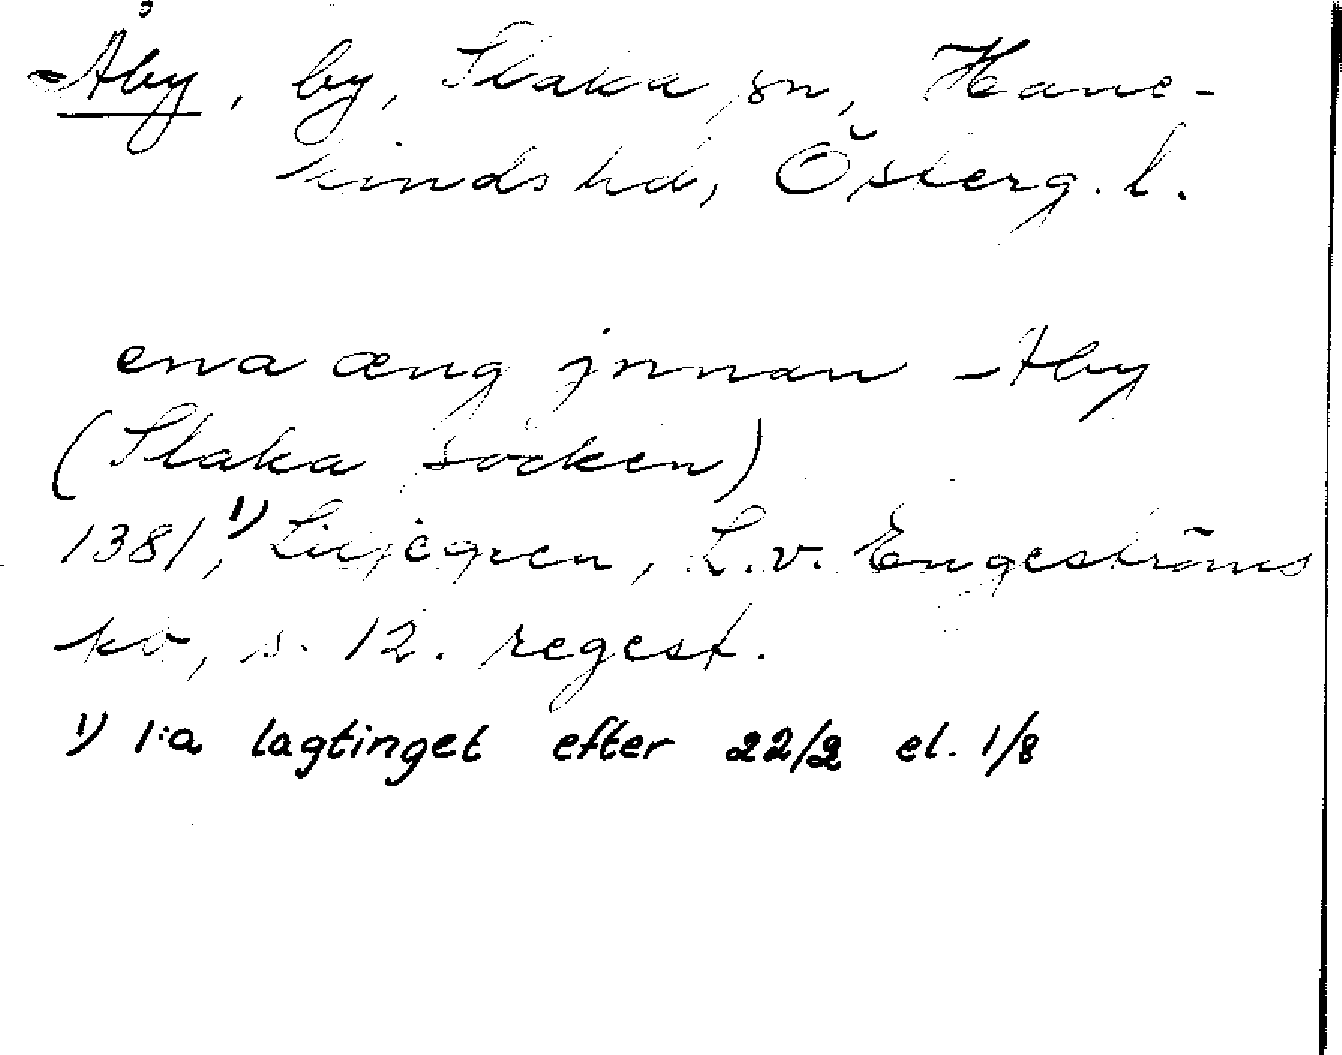 Åby, by, Slaka sn, Hane-
kinds hd, Österg. l.
ena æng jnnan Aby
(Slaka socken)
1381,¹⁾ Liljegren, L.v. Engeströms
ko, s. 12. regest.
¹⁾ 1:a lagtinget efter 22/2 el. 1/8